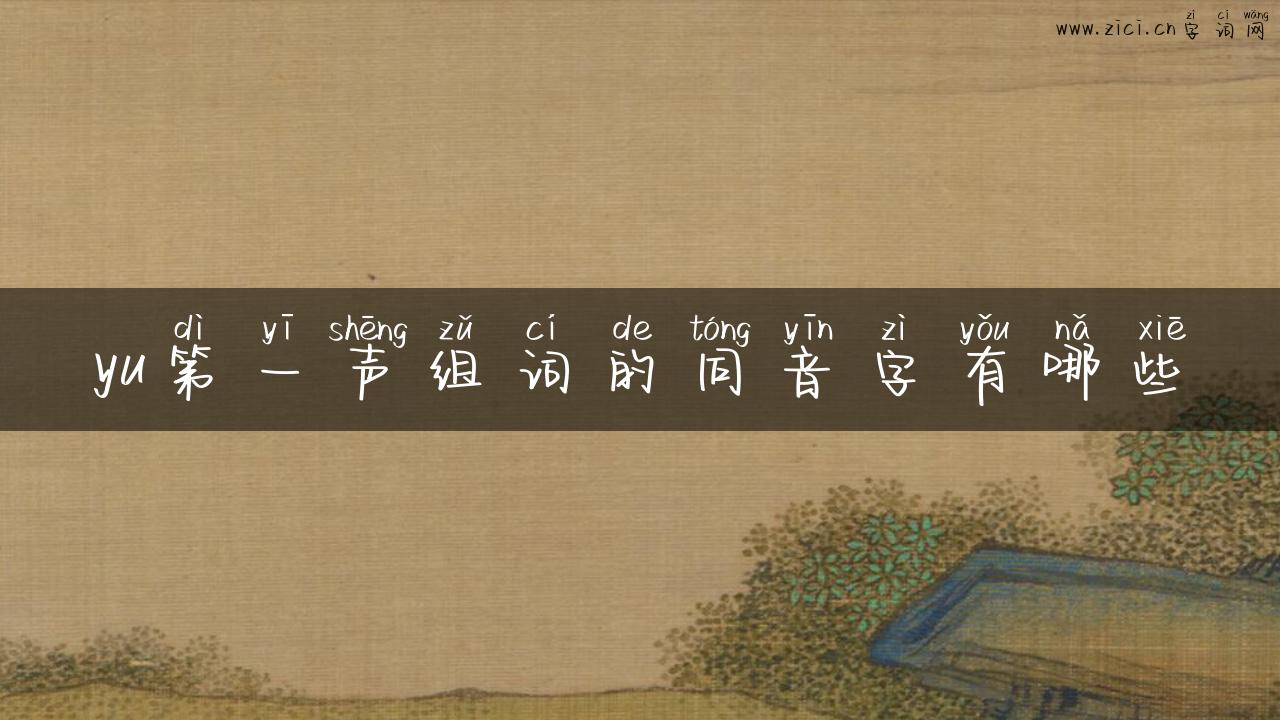 zì cí wǎng
www.zici.cn字词网
dì yī shēng zǔ cí de tóng yīn zì yǒu nǎ xiē
yu第一声组词的同音字有哪些